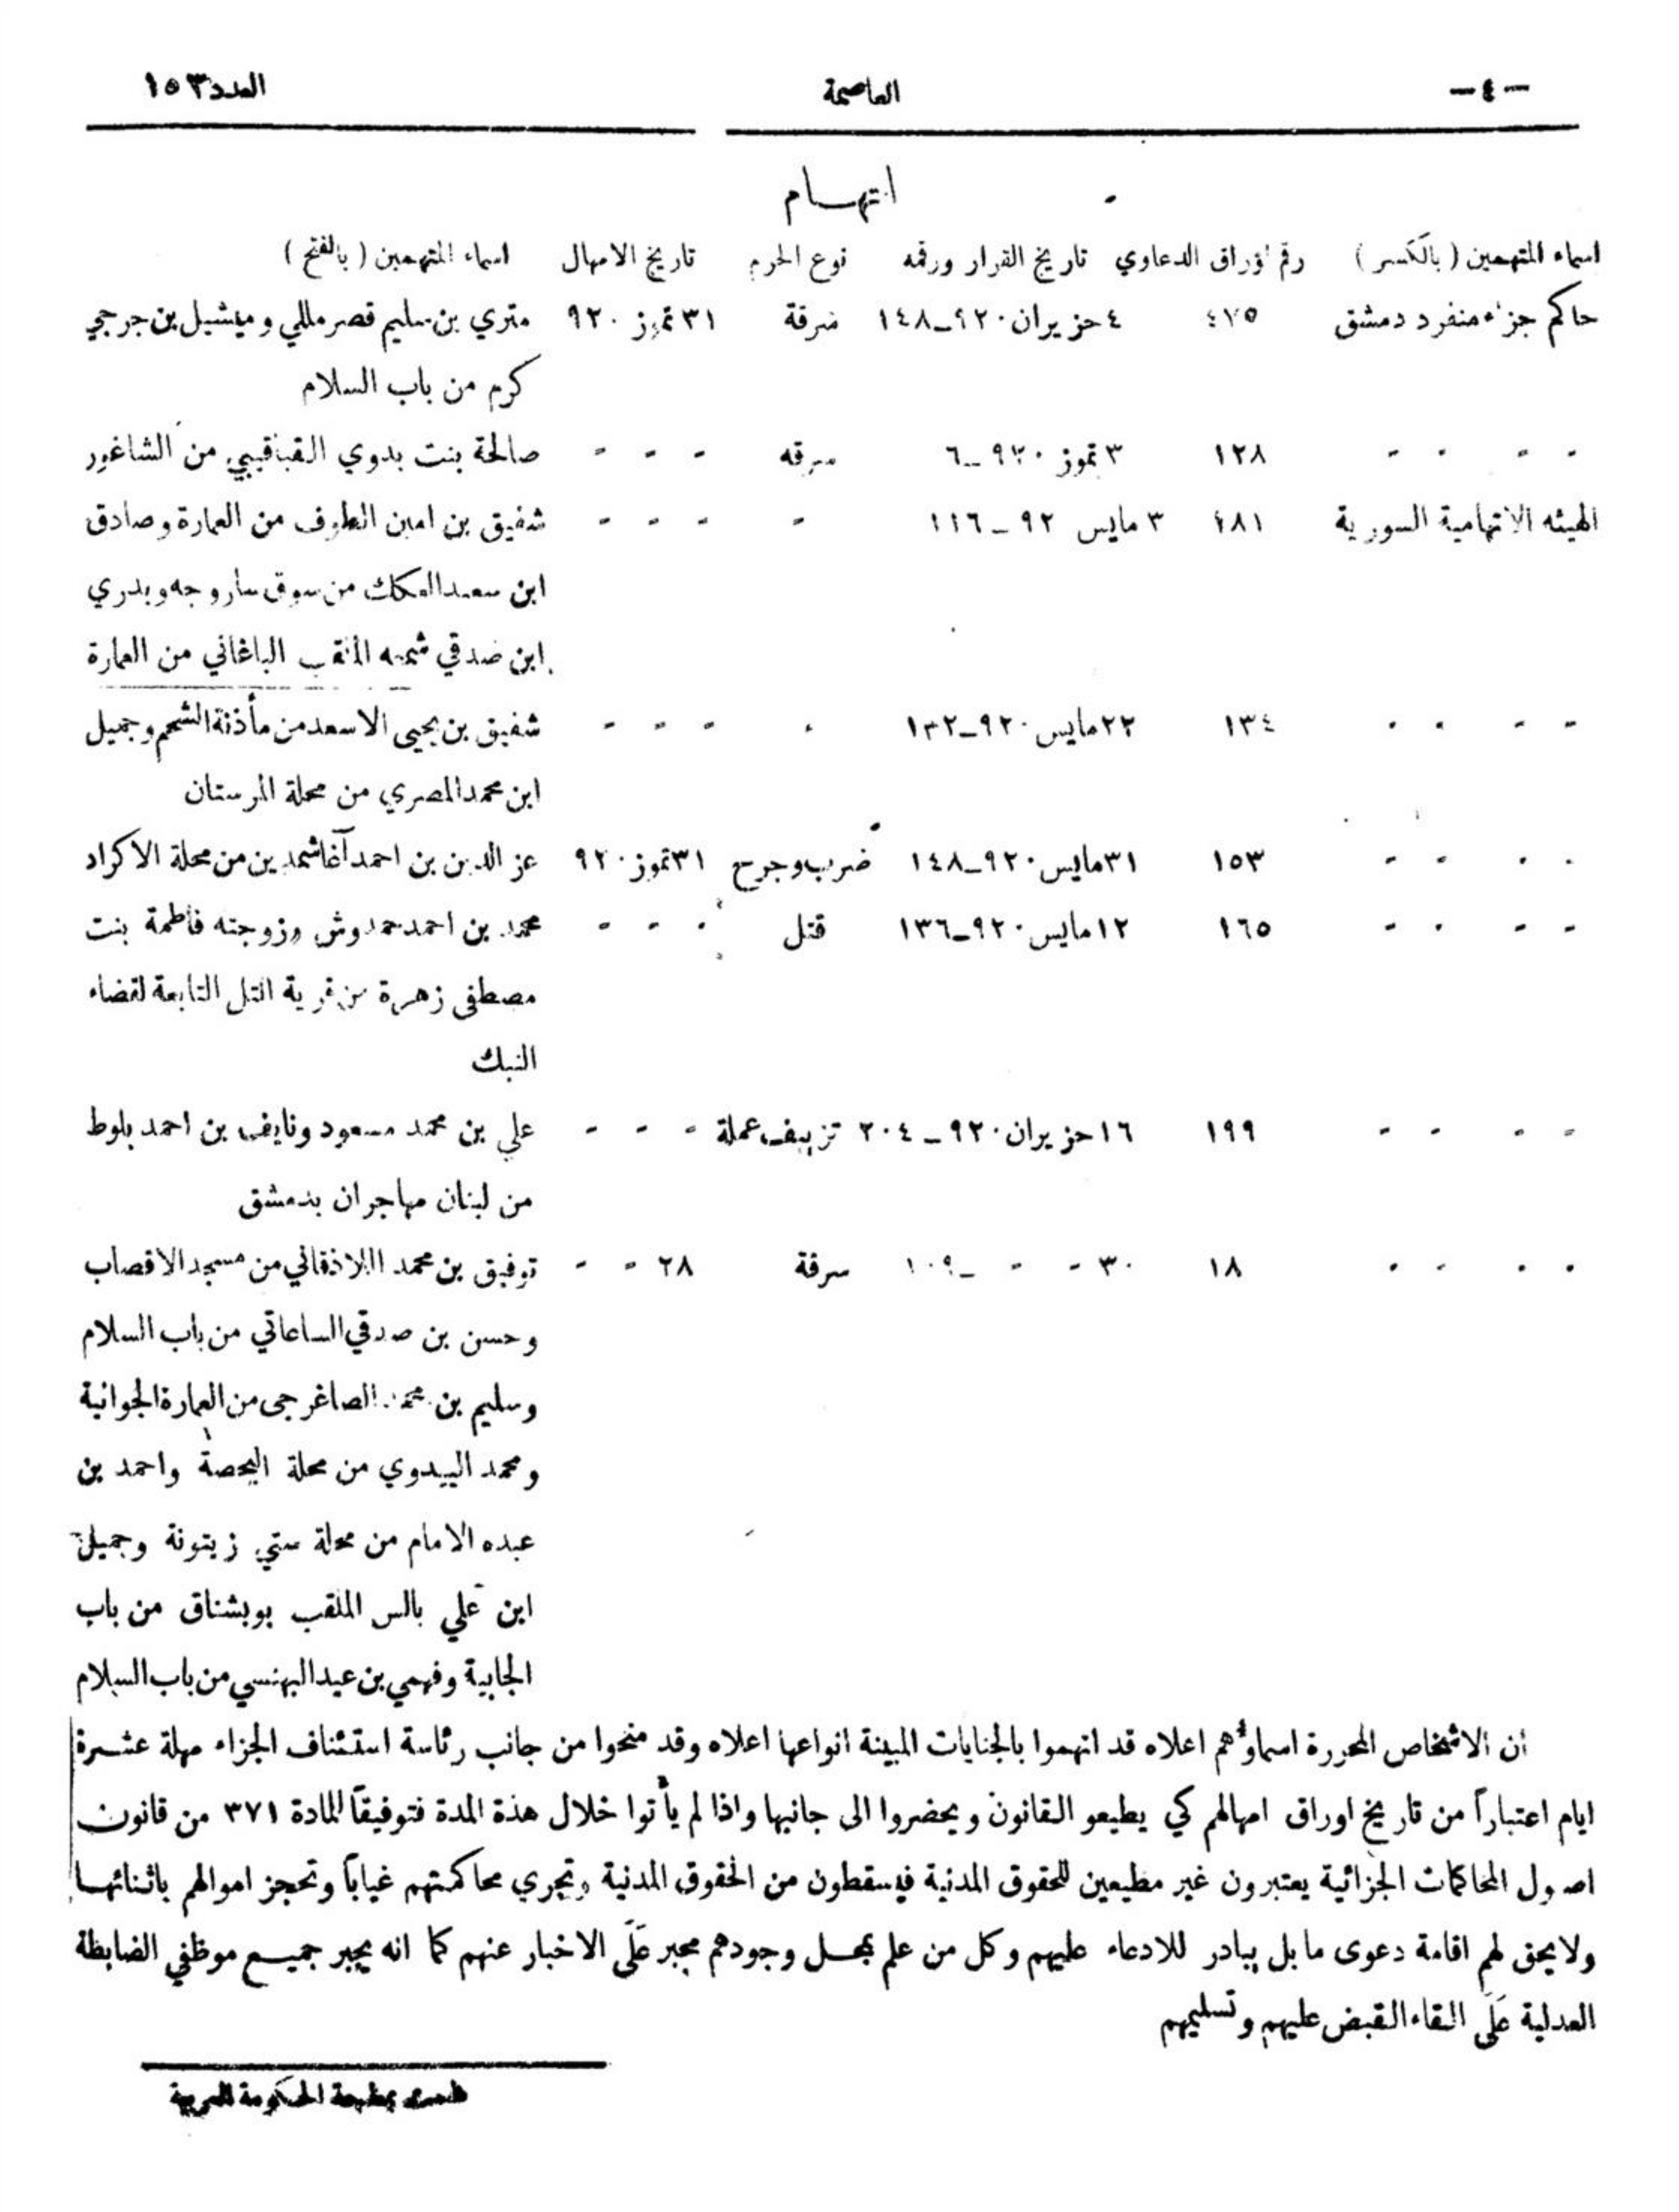 -٤-	العاصمة	العدد ١٥٣
اتهـــام
اسماء المتهمين (بالكسر)	رقم اوراق الدعاوي	تاريخ القرار ورقمه	نوع الجرم	تاريخ الامهال	اسماء المتهمين (بالفتح)
حاكم جزاء منفرد دمشق	٤٧٥	٤ حزيران ٩٢٠ـ١٤٨	سرقة	٣١ تموز ٩٢٠	متري بن سليم قصرمللي وميشيل بن جرجي
كرم من باب السلام
- - - -	١٢٨	٣ تموز ٩٢٠ـ٦	سرقه	- - -	صالحة بنت بدوي القباقيبي من الشاغور
الهيئه الاتهامية السورية	٤٨١	٣ مايس ٩٢ ـ ١١٦	-	- - -	شفيق بن امين الطرف من العمارة وصادق
ابن سعيد العكك من سوق ساروجه وبدري
ابن صدقي شمعه الملقب الباغاني من العمارة
- - - -	١٣٤	٢٢ مايس ٩٢٠ـ١٣٢	-	- - -	شفيق بن يحيى الاسعد من مأذنة الشحم وجميل
ابن محمد المصري من محلة المرستان
- - - -	١٥٣	٣١ مايس ٩٢٠ـ١٤٨	ضرب وجرح	٣١ تموز ٩٢٠	عز الدين بن احمد آغا شمدين من محلة الاكراد
- - - -	١٦٥	١٢ مايس ٩٢٠ـ١٣٦	قتل	- - -	محمد بن احمد حمدوش وزوجته فاطمة بنت
مصطفى زهرة من قرية التل التابعة لقضاء
النبك
- - - -	١٩٩	١٦ حزيران ٩٢٠ ـ ٢٠٤	تزييف عملة	- - -	علي بن محمد مسعود ونايف بن احمد بلوط
من لبنان مهاجران بدمشق
- - - -	١٨	٣٠ - - ـ١٠٩	سرقة	٢٨ - -	توفيق بن محمد اللاذقاني من مسجد الاقصاب
وحسن بن صدقي الساعاتي من باب السلام
وسليم بن محمد الصاغرجى من العمارة الجوانية
ومحمد البيدوي من محلة البحصة واحمد بن
عبده الامام من محلة ستي زيتونة وجميل
ابن علي بالس الملقب بوبشناق من باب
الجابية وفهمي بن عيد البهنسي من باب السلام
ان الاشخاص المحررة اسماؤهم اعلاه قد اتهموا بالجنايات المبينة انواعها اعلاه وقد منحوا من جانب رئاسة استئناف الجزاء مهلة عشـــرة
ايام اعتباراً من تاريخ اوراق امهالهم كي يطيعو القانون ويحضروا الى جانبها واذا لم يأتوا خلال هذة المدة فتوفيقاً للمادة ٣٧١ من قانون
اصول المحاكمات الجزائية يعتبرون غير مطيعين للحقوق المدنية فيسقطون من الحقوق المدنية وتجري محاكمتهم غياباً وتحجز اموالهم باثنائهــا
ولا يحق لهم اقامة دعوى ما بل يبادر للادعاء عليهم وكل من علم بمحــل وجودهم مجبر عَلَى الاخبار عنهم كما انه يجبر جميـــع موظفي الضابطة
العدلية عَلَى القاء القبض عليهم وتسليمهم
بمطبعة الحكومة العربية